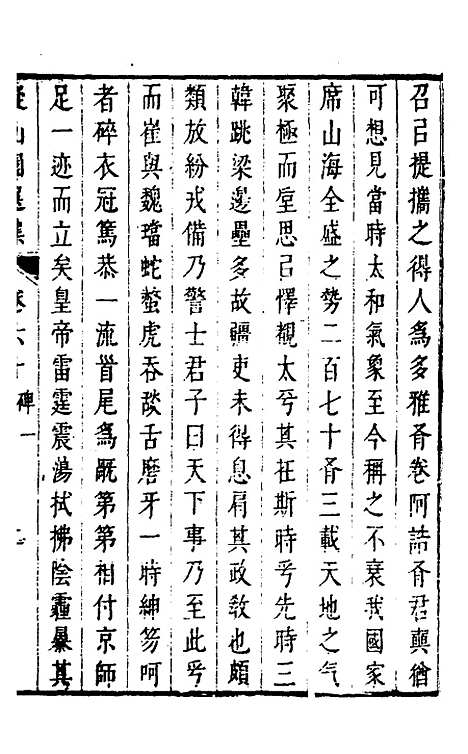 召㠯提攜之得人爲多雅有卷阿誥有君奭猶
可想見當時太和氣象至今稱之不衰我國家
席山海全盛之勢二百七十有三載天地之气
聚極而堂思㠯懌觀太兮其在斯時乎先時三
韓跳梁邊壘多故疆吏未得息肩其政教也頗
類放紛戎備乃警士君子曰天下事乃至此乎
而崔與魏璫蛇螫虎吞舌磨牙一時紳笏呵
者碎衣冠篤恭一流首尾爲厩第第相付京師
足一迹而立矣皇帝雷霆震蕩拭拂陰霾暴其
山園選集
卷六十
碑一